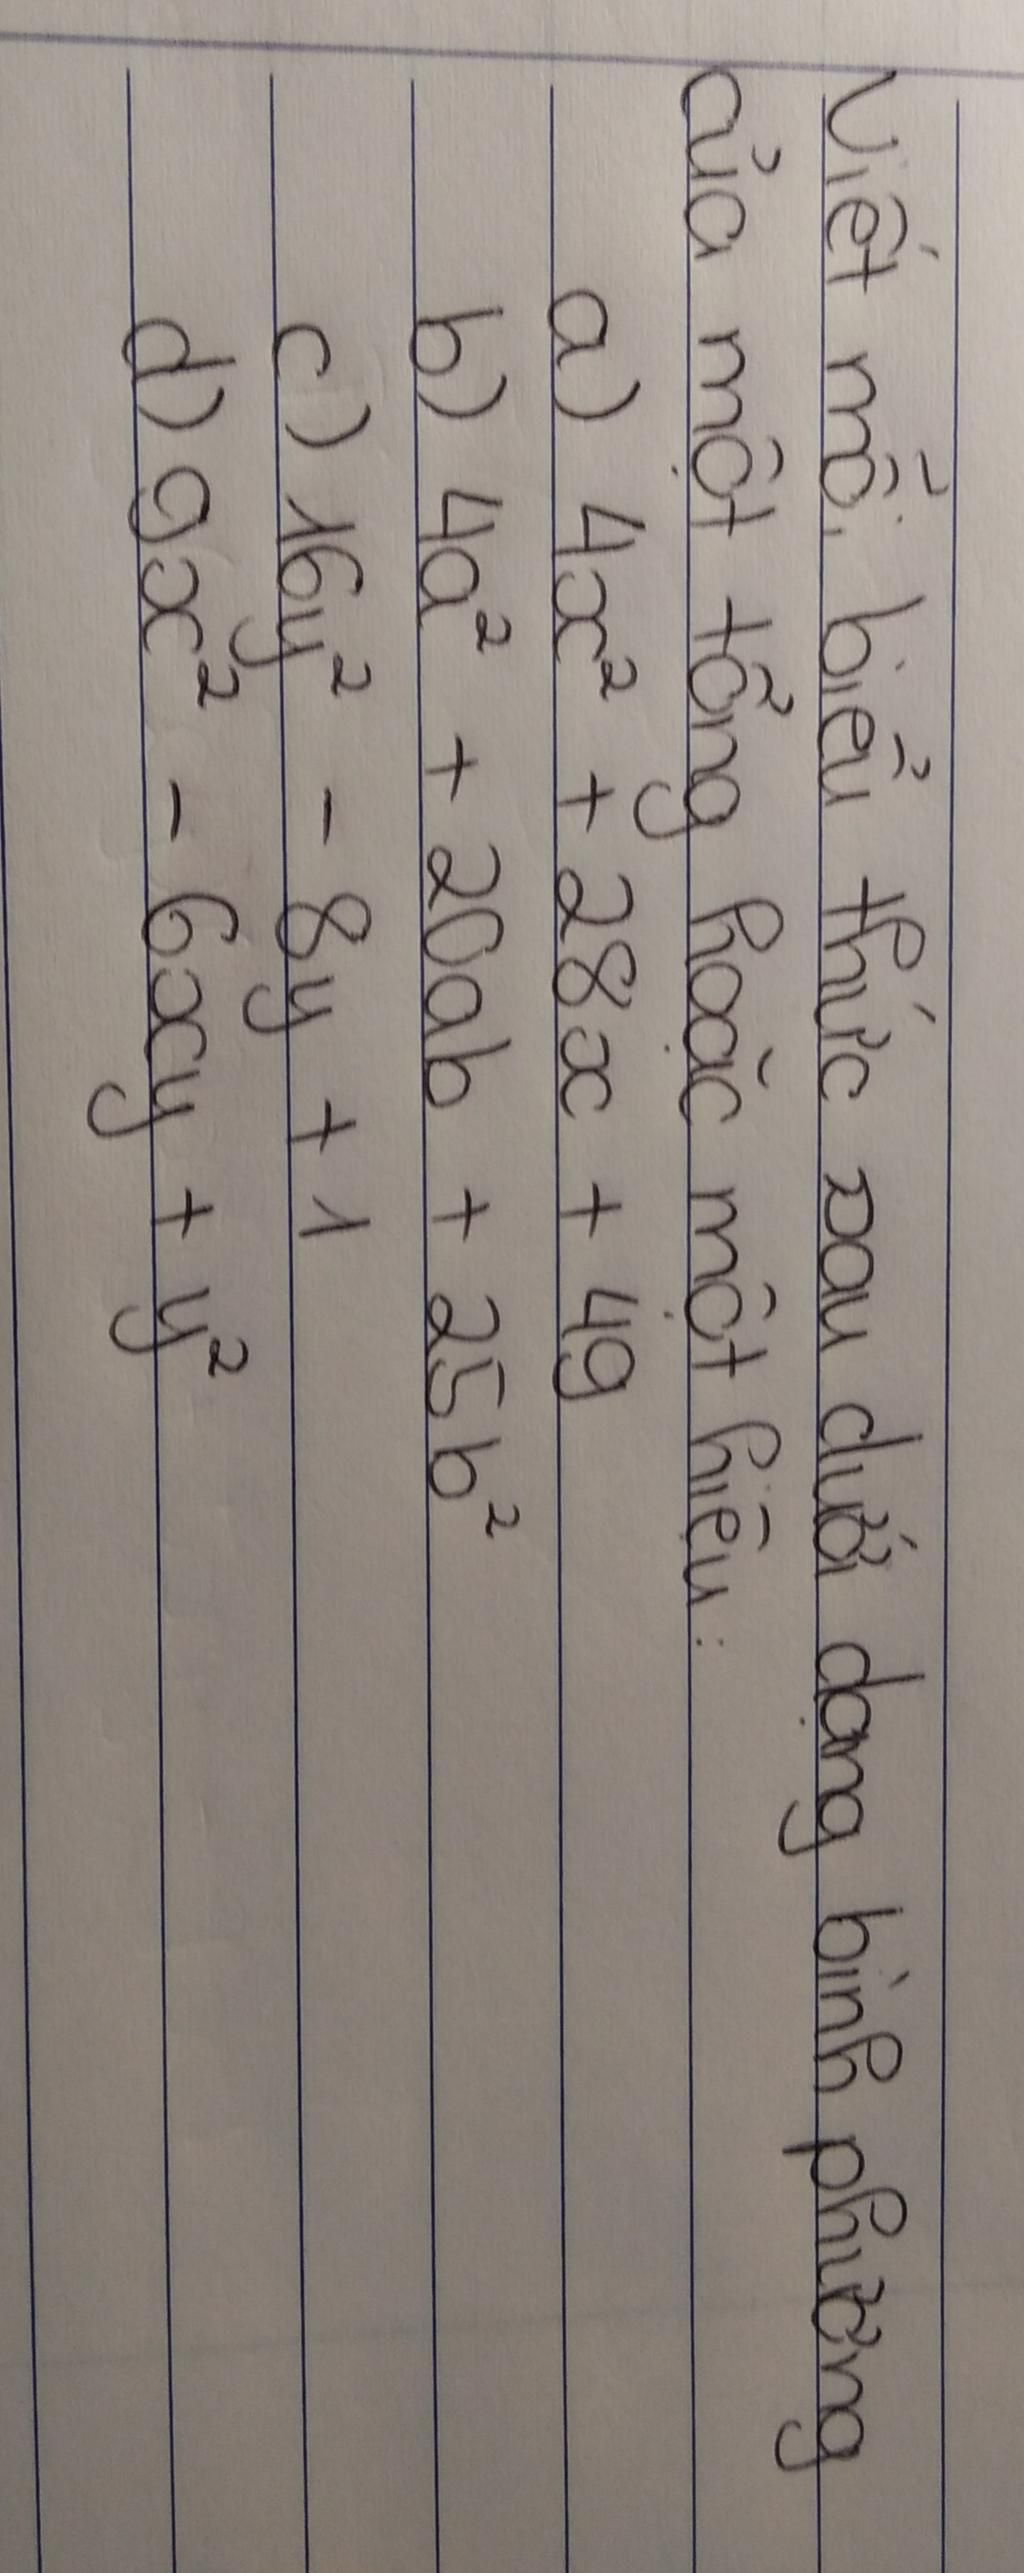 Viết mỗi biểu thức sau dưới dạng bình phương
của một tổng hoặc một hiệu:
a) 4x² + 28x + 49
b) 4a² + 20ab + 25b²
c) 16y² - 8y + 1
d) 9x² - 6xy + y²